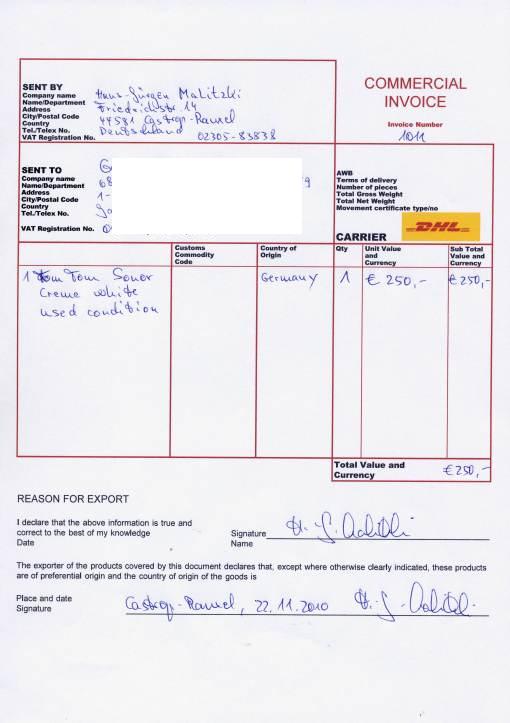 COMMERCIAL
INVOICE
Invoice Number
1011
SENT BY
Company name Hans-Jürgen Malitzki
Name/Department
Address Friedrichstr. 14
City/Postal Code 44581 Castrop-Rauxel
Country Deutschland
Tel./Telex No. 02305-83838
VAT Registration No.
SENT TO
Company name
Name/Department
Address
City/Postal Code
Country
Tel./Telex No.
VAT Registration No.
AWB
Terms of delivery
Number of pieces
Total Gross Weight
Total Net Weight
Movement certificate type/no
DHL
CARRIER
Customs Commodity Code
Country of Origin
Qty
Unit Value and Currency
Sub Total Value and Currency
1 Tom Tom Sonor Germany 1 € 250,- €250,-
Creme white
used condition
Total Value and Currency €250,-
REASON FOR EXPORT
I declare that the above information is true and
correct to the best of my knowledge
Date
Signature
Name
The exporter of the products covered by this document declares that, except where otherwise clearly indicated, these products
are of preferential origin and the country of origin of the goods is
Place and date Castrop-Rauxel, 22.11.2010
Signature